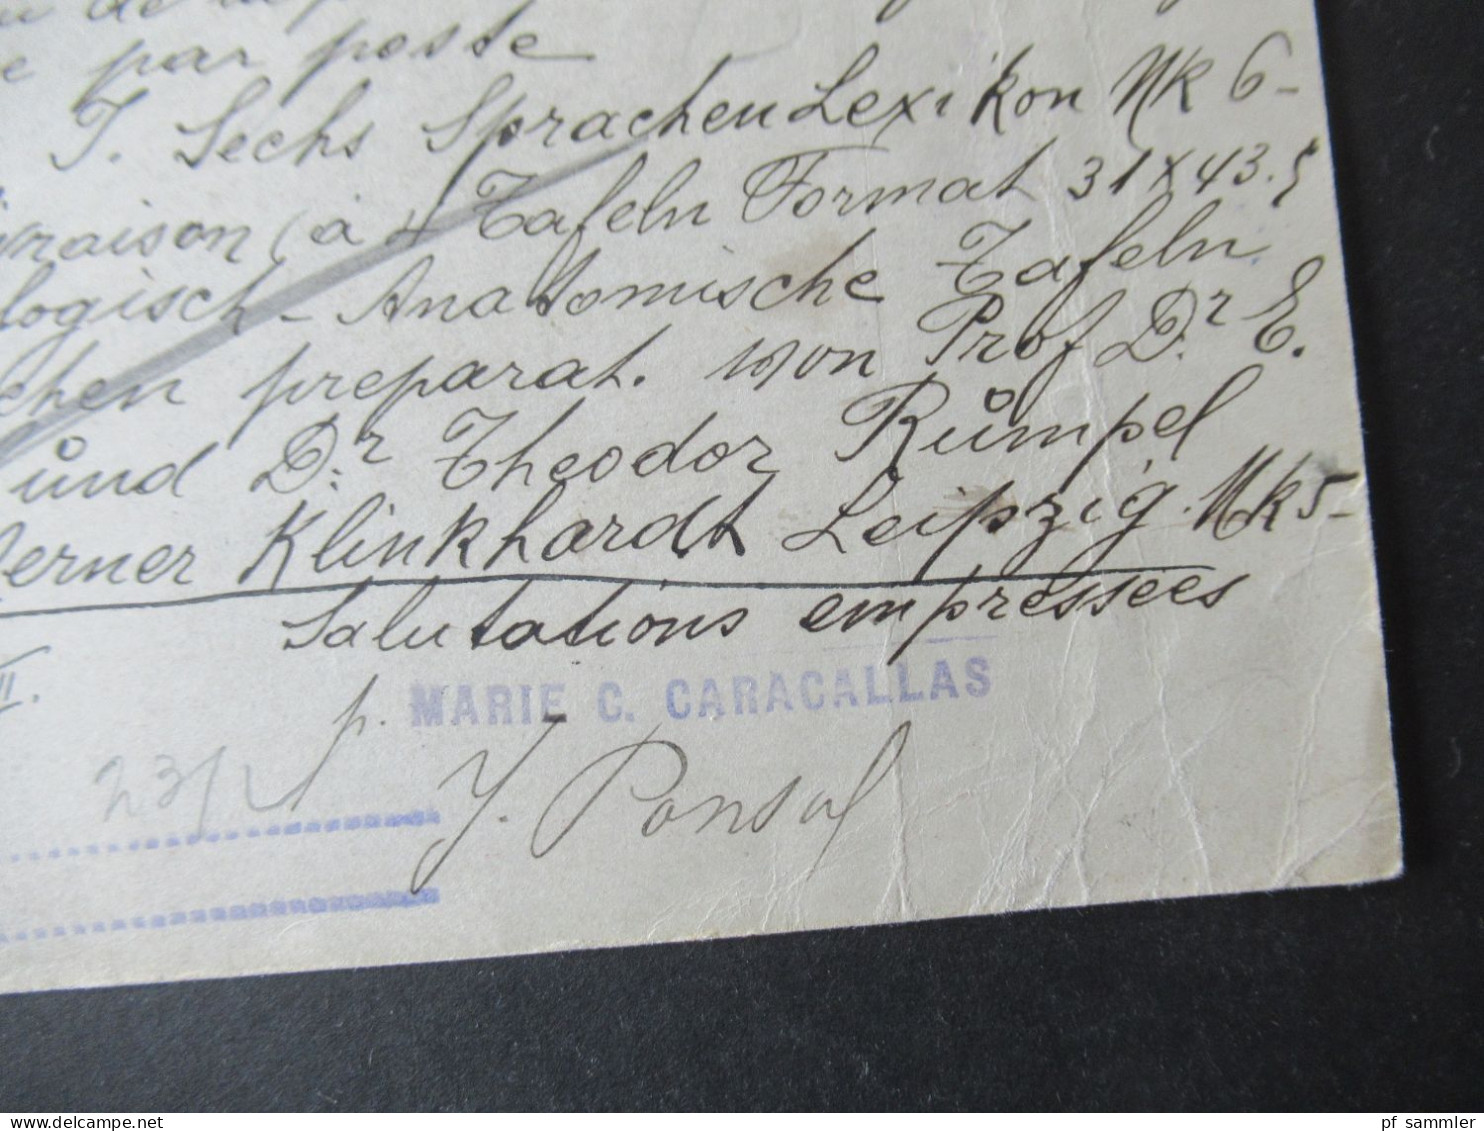 par poste
J. Sechs Sprachen Lexikon Mk 6-
ivraison (à 4 Tafeln Format 31 x 43.5
logisch - Anatomische Tafeln
chen preparat. von Prof Dr. E.
und Dr. Theodor Rümpel
erner Klinkhardt Leipzig. Mk 5-
Salutations empressees
p. MARIE C. CARACALLAS
J. Ponsal
pf_sammler - Delcampe.net